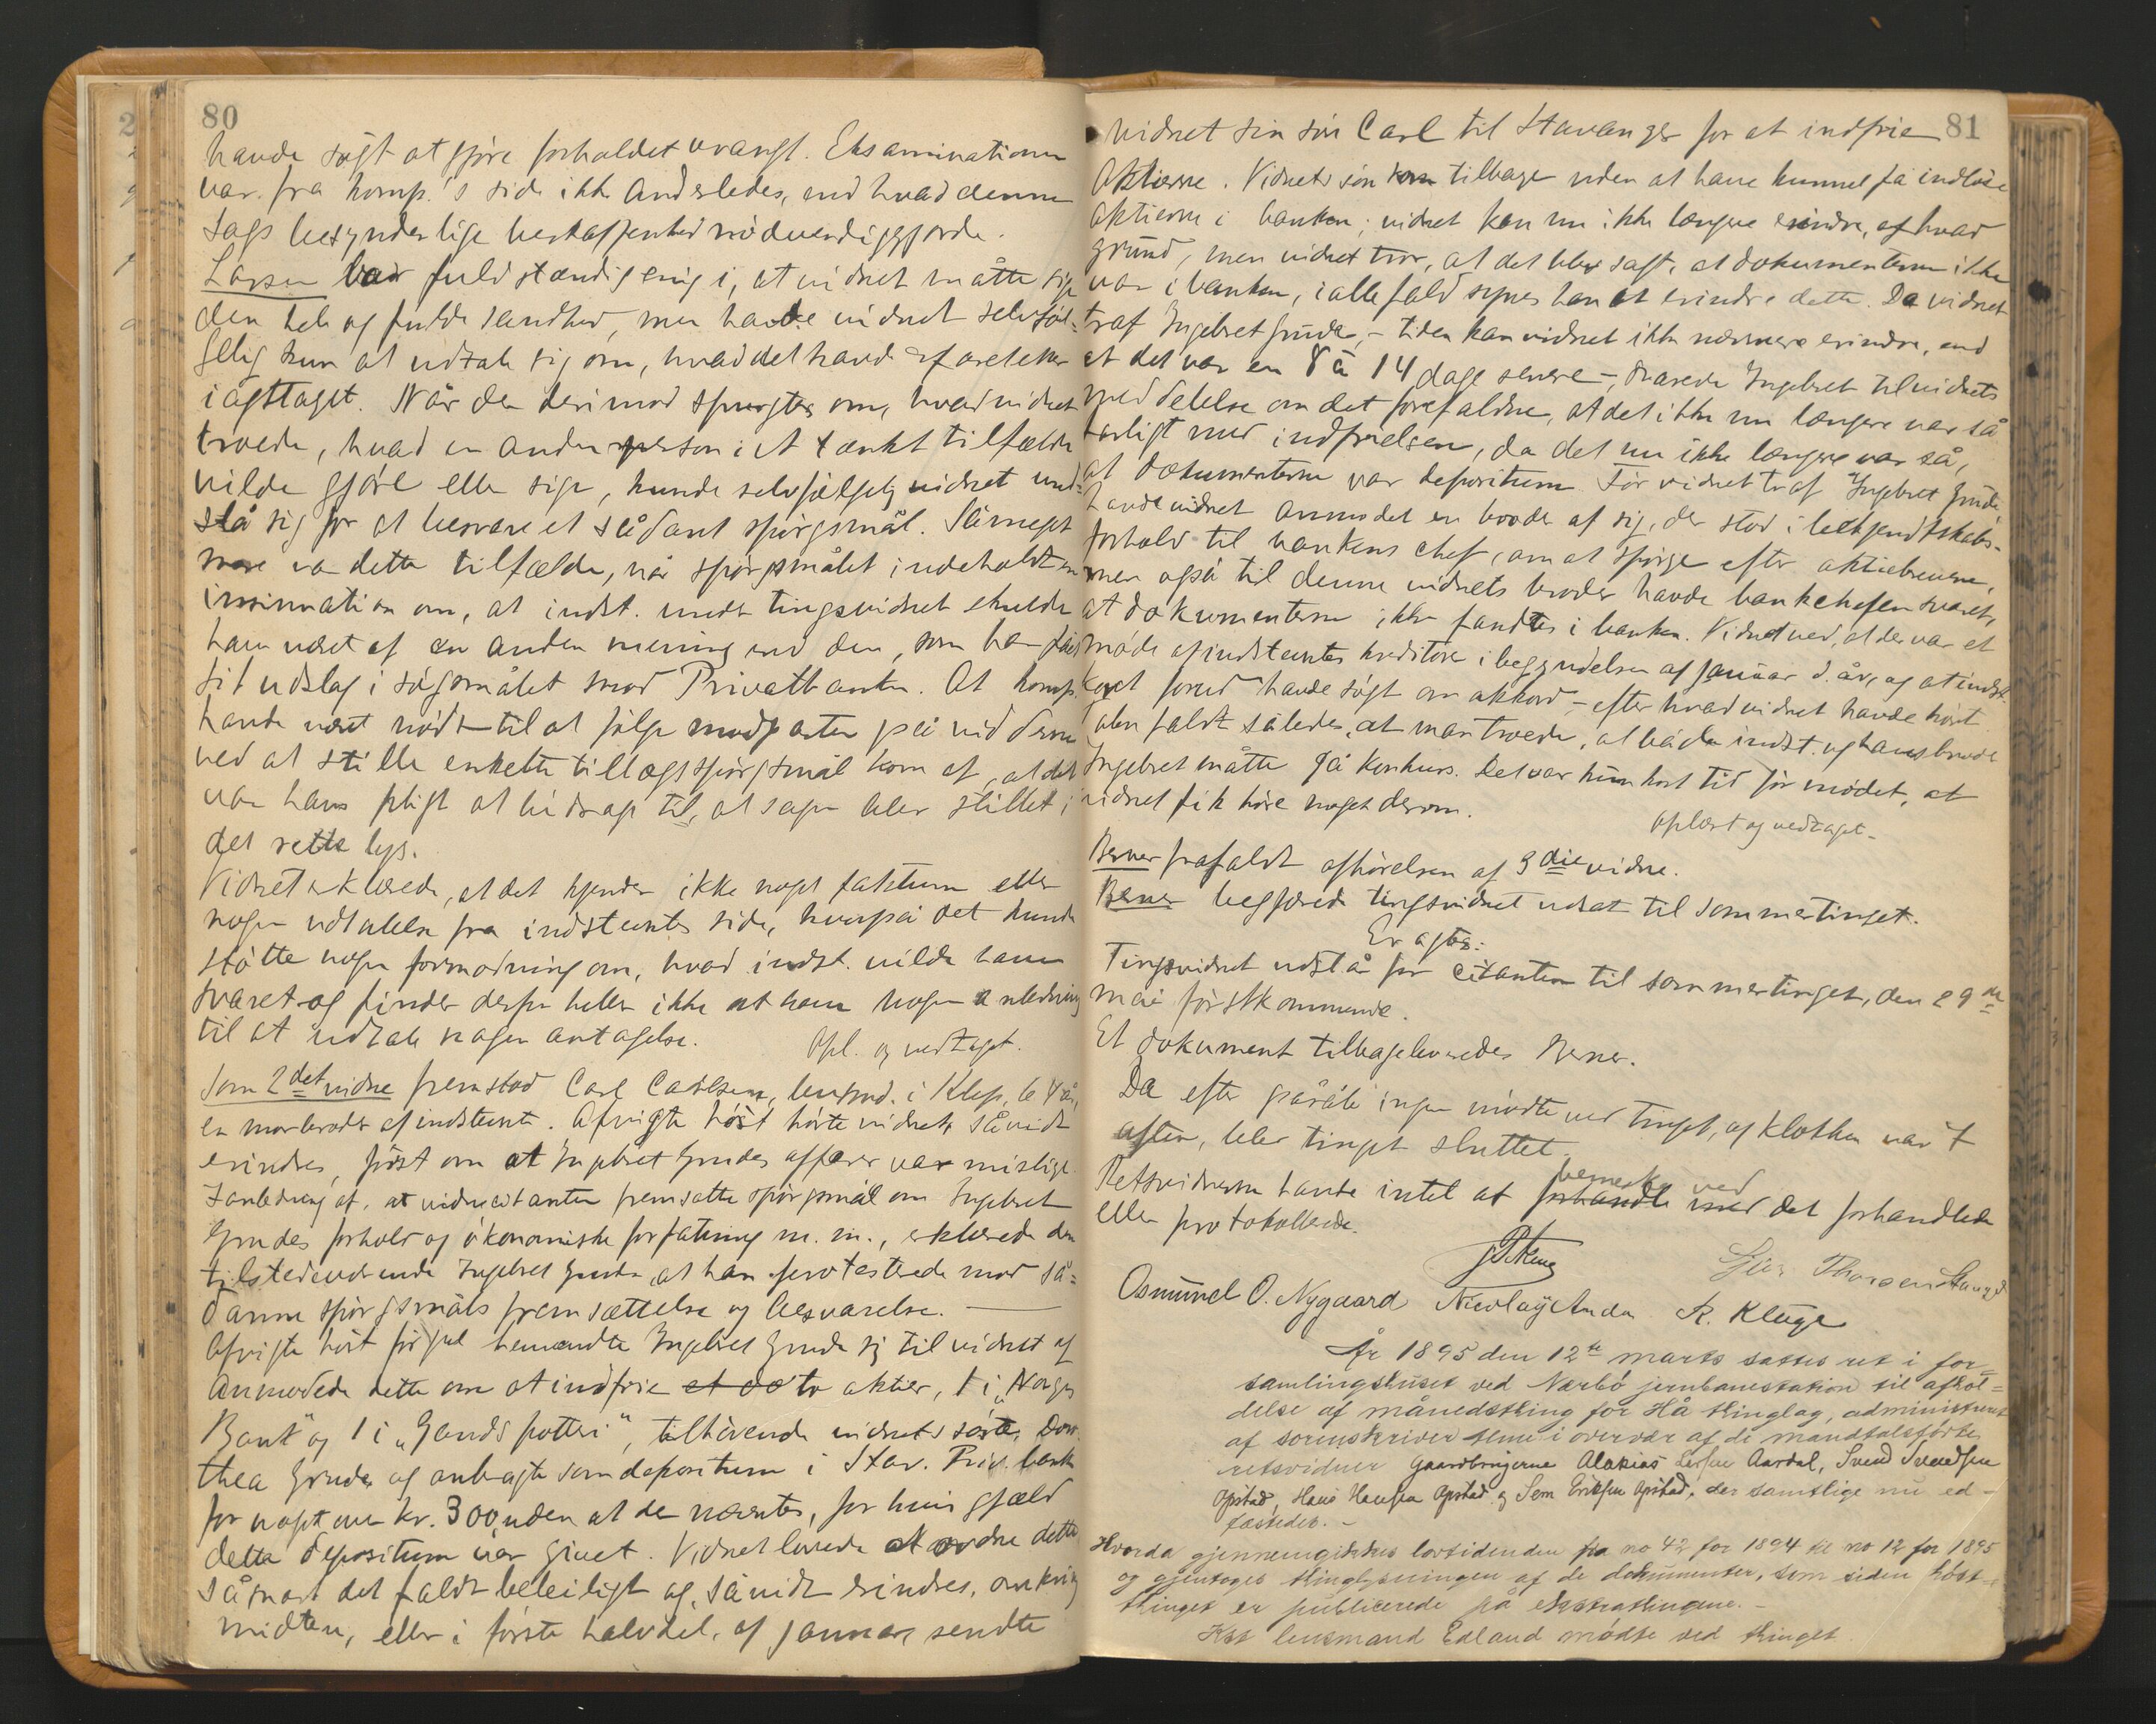 80
havde søgt at gjøre forholdet vrangt. Eksaminationen
var fra komp.'s side ikke anderledes, end hvad denne
sags besynderlige beskaffenhed nødvendiggjorde.
Larsen var fuldstændig enig i, at vidnet måtte sige
den hele og fulde sandhed, men havde vidnet selvføl=
gelig kun at udtale sig om, hvad det havde erfaret eller
iagttaget. Når der derimod spurgtes om, hvad vidnet
troede, hvad en anden person i et tænkt tilfælde
vilde gjøre eller sige, kunde selvfølgelig vidnet und=
slå sig for at besvare et sådant spørgsmål. Så meget
mere var dette tilfælde, når spørgsmålet indeholdt en
insinuation om, at indst. under tingsvidnet skulde
have været af en anden mening end den, som har fået
sit udslag i søgsmålet mod Privatbanken. At komp.
havde været nødt til at følge modparten på vidderne
ved at stille enkelte tillægsspørgsmål kom af, at det
var hans pligt at bidrage til, at sagen blev stillet i
det rette lys.
Vidnet erklærede, at det kjender ikke noget faktum eller
nogen udtalelse fra indstevntes side, hvorpå det kunde
støtte nogen formodning om, hvad indst. vilde have
svaret og finder derfor heller ikke at have nogen anledning
til at udtale nogen antagelse.
Opl. og vedtaget.
Som 2det vidne fremstod Carl Carlsen, lensmd. i Klep, 64 år,
en morbroder af indstevnte. Afvigte høst hørte vidnet, såvidt
erindres, først om at Ingebret Grudes affærer var mislige.
I anledning af, at vidnecitanten fremsatte spørgsmål om Ingebret
Grudes forhold og økonomiske forfatning m. m., erklærede den
tilstedeværende Ingebret Grude, at han protesterede mod så=
danne spørgsmåls fremsættelse og besvarelse.
Afvigte høst før jul henvendte Ingebret Grude sig til vidnet og
anmodede dette om at indfrie et do to aktier, 1 i „Norges
Bank" og 1 i „Gands potteri", tilhørende vidnets søster Doro=
thea Grude og anbragte som depositum i Stav. Priv. bank
for noget over kr. 300, uden at der nævntes, for hvis gjæld
dette depositum var givet. Vidnet lovede at ordne dette
såsnart det faldt beleiligt og, såvidt erindres, omkring
midten, eller i første halvdel, af januar sendte
81
vidnet sin søn Carl til Stavanger for at indfrie
aktierne. Vidnets søn kom tilbage uden at have kunnet få indløse
aktierne i banken; vidnet kan nu ikke længere erindre, af hvad
grund, men vidnet tror, at det blev sagt, at dokumenterne ikke
var i banken, iallefald synes han at erindre dette. Da vidnet
traf Ingebret Grude, – tiden kan vidnet ikke nærmere erindre, end
at det var en 8 à 14 dage senere –, svarede Ingebret til vidnets
meddelelse om det forefaldne, at det ikke nu længere var så
farligt med indfrielsen, da det nu ikke længere var så,
at dokumenterne var depositum. Før vidnet traf Ingebret Grude
havde vidnet anmodet en broder af sig, der stod i bekjendtskabs=
forhold til bankens chef, om at spørge efter aktiebrevene,
men også til denne vidnets broder havde bankchefen svaret,
at dokumenterne ikke fandtes i banken. Vidnet ved, at der var et
møde af indstevntes kreditorer i begyndelsen af januar d. år, og at indst.
kort forud havde søgt om akkord – efter hvad vidnet havde hørt
talen faldt således, at man troede, at både indst. og hans broder
Ingebret måtte gå konkurs. Det var kun kort tid før mødet, at
vidnet fik høre noget derom.
Oplæst og vedtaget.
Berner frafaldt afhørelsen af 3die vidne.
Berner begjærede tingsvidnet udsat til sommertinget.
Er agtes:
Tingsvidnet udstår for citanten til sommertinget, den 29de
mai førstkommende.
Et dokument tilbageleveredes Berner.
Da efter påråb ingen mødte ved tinget, og klokken var 7
aften, blev tinget sluttet.
Retsvidnerne havde intet at forhandle med bemerke ved det forhandlede
eller protokollerede.
Osmund O. Nygaard Nicolay Anda R. Kluge
År 1895 den 12te marts sattes ret i for=
samlingshuset ved Nærbø jernbanestation til afhol=
delse af månedsthing for Hå thinglag, administreret
af sorenskriver i overvær af de mandtalsførte
retsvidner Gaardbrugerne Larsen Aardal, Svend Svendsen
Opstad, Hans Hansen Opstad og Sem Eriksen Opstad, der samtlige nu ed=
fæstedes. –
Hvorda gjennemgikkes lovtidenden fra no 42 for 1894 til no 12 for 1895
og gjentoges thinglysningen af de dokumenter, som siden høst=
thinget er publicerede på ekstrathingene. –
Kst lensmand Edland mødte ved thinget.